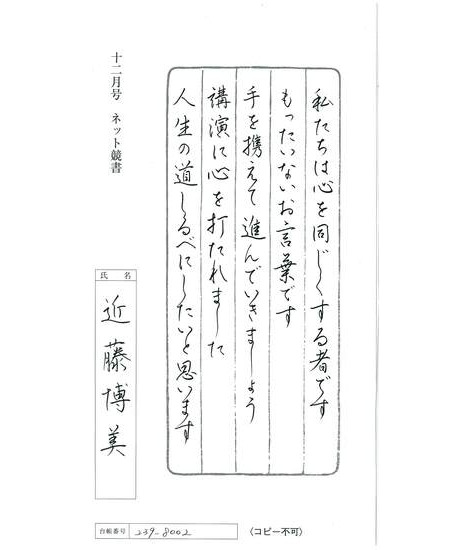 私たちは心を同じくする者です
もったいないお言葉です
手を携えて進んでいきましょう
講演に心を打たれました
人生の道しるべにしたいと思います
十二月号 ネット競書
氏名
近藤博美
台帳番号 239-8002
(コピー不可)